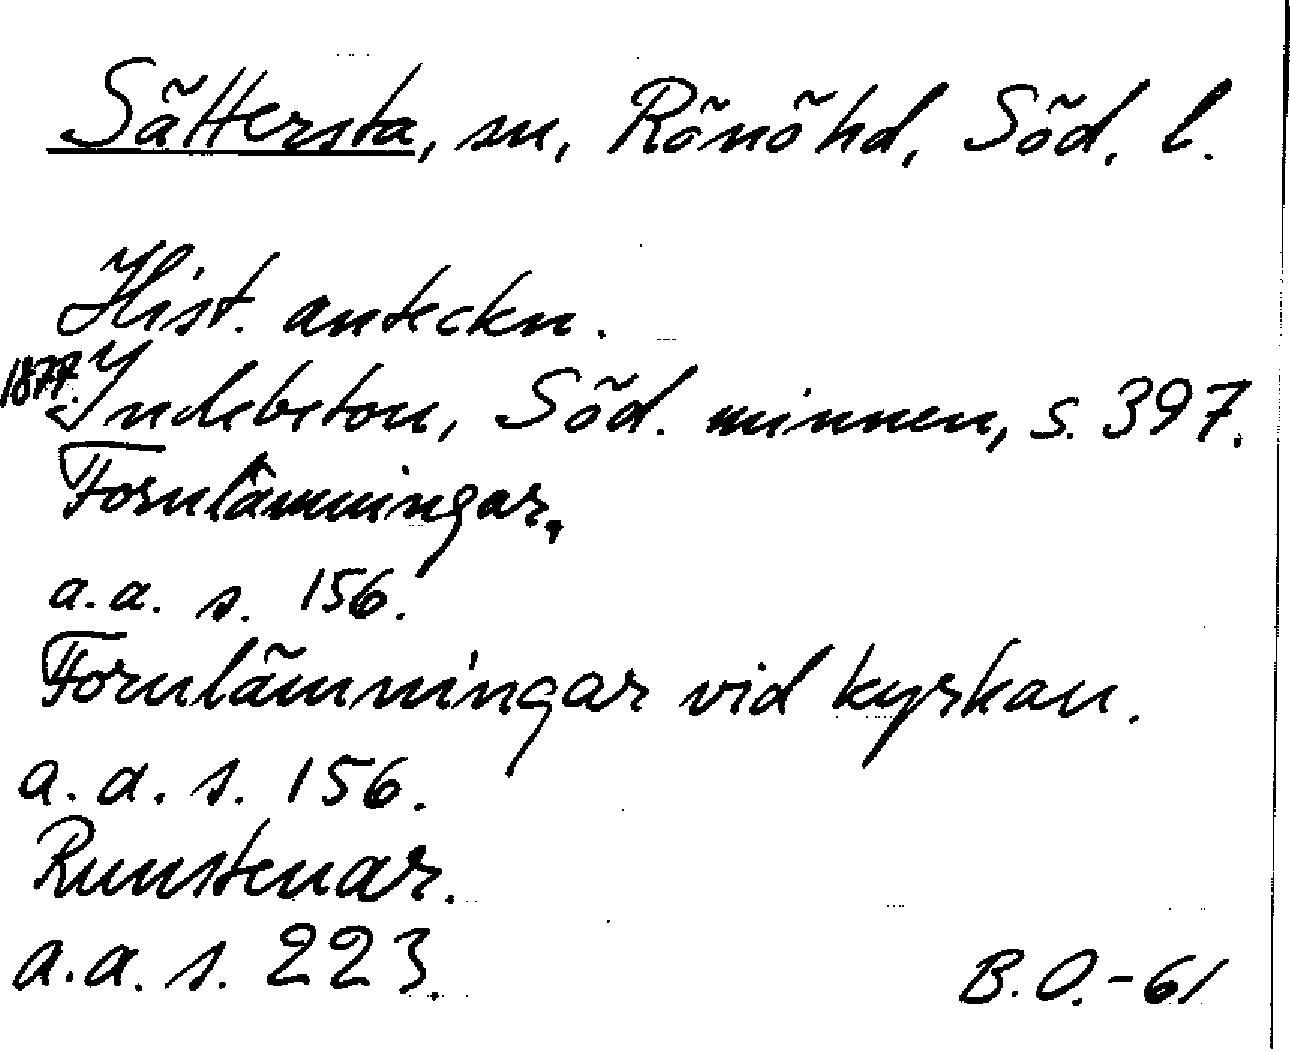 Sättersta, sn, Rönöhd, Söd. l.
Hist. anteckn.
1877. Indebetou, Söd. minnen, s. 397.
Fornlämningar.
a.a. s. 156.
Fornlämningar vid kyrkan.
a.a. s. 156.
Runstenar.
a.a. s. 223.
B.O.-61